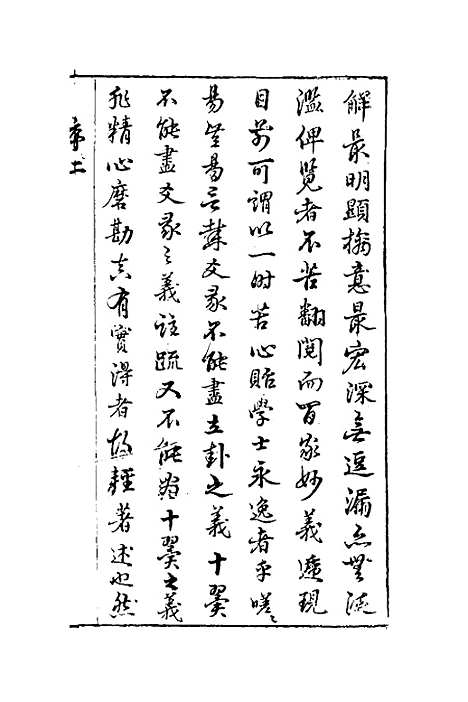 解最明顯摛意最宏深無逗漏亦無淫
濫俾覽者不苦翻閱而百家妙義遞現
目前可謂以一時苦心貽學士永逸者乎嗟〻
易豈易言哉爻彖不能盡立卦之義十翼
不能盡爻彖之義註疏又不能盡十翼之義
非精心磨勘真有實得者輕著述也然
序二